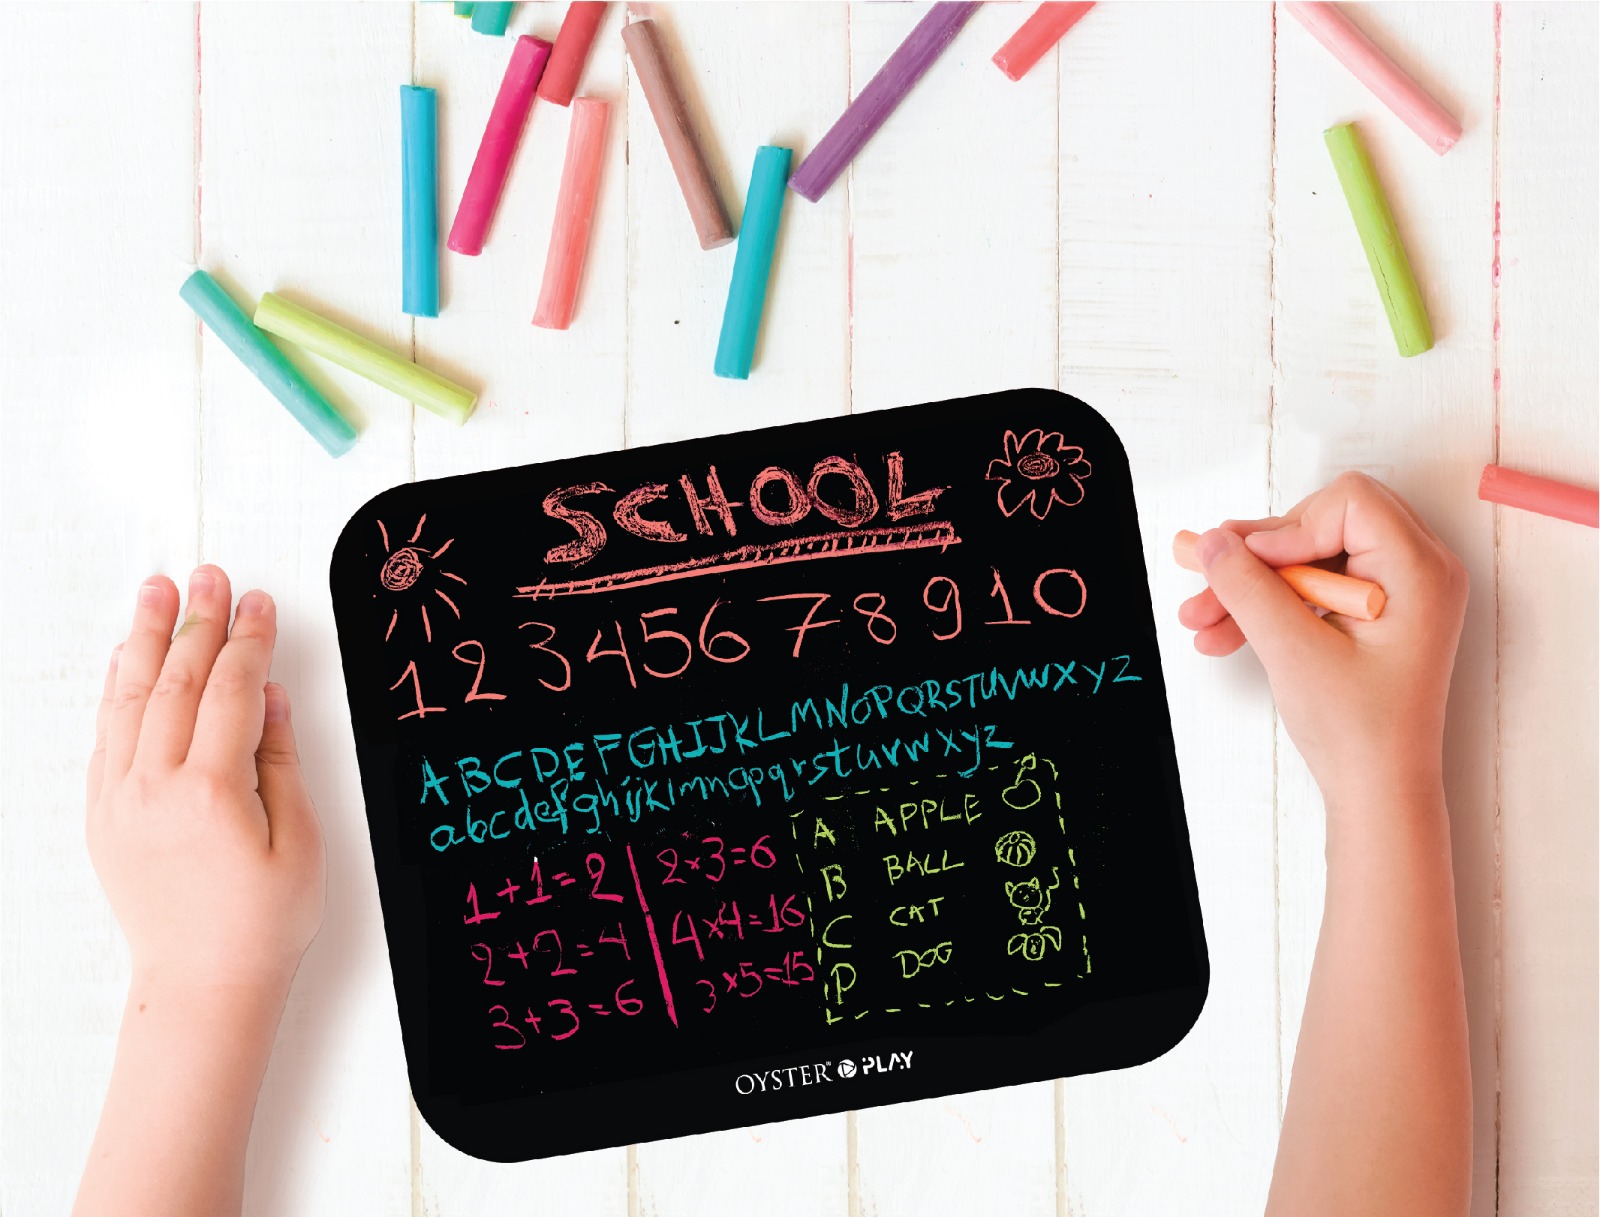 SCHOOL
1 2 3 4 5 6 7 8 9 10
A B C D E F G H I J K L M N O P Q R S T U V W X Y Z
a b c d e f g h i j k l m n o p q r s t u v w x y z
1+1=2
2+2=4
3+3=6
2×3=6
4×4=16
3×5=15
A APPLE
B BALL
C CAT
D DOG
OYSTER™ PLAY